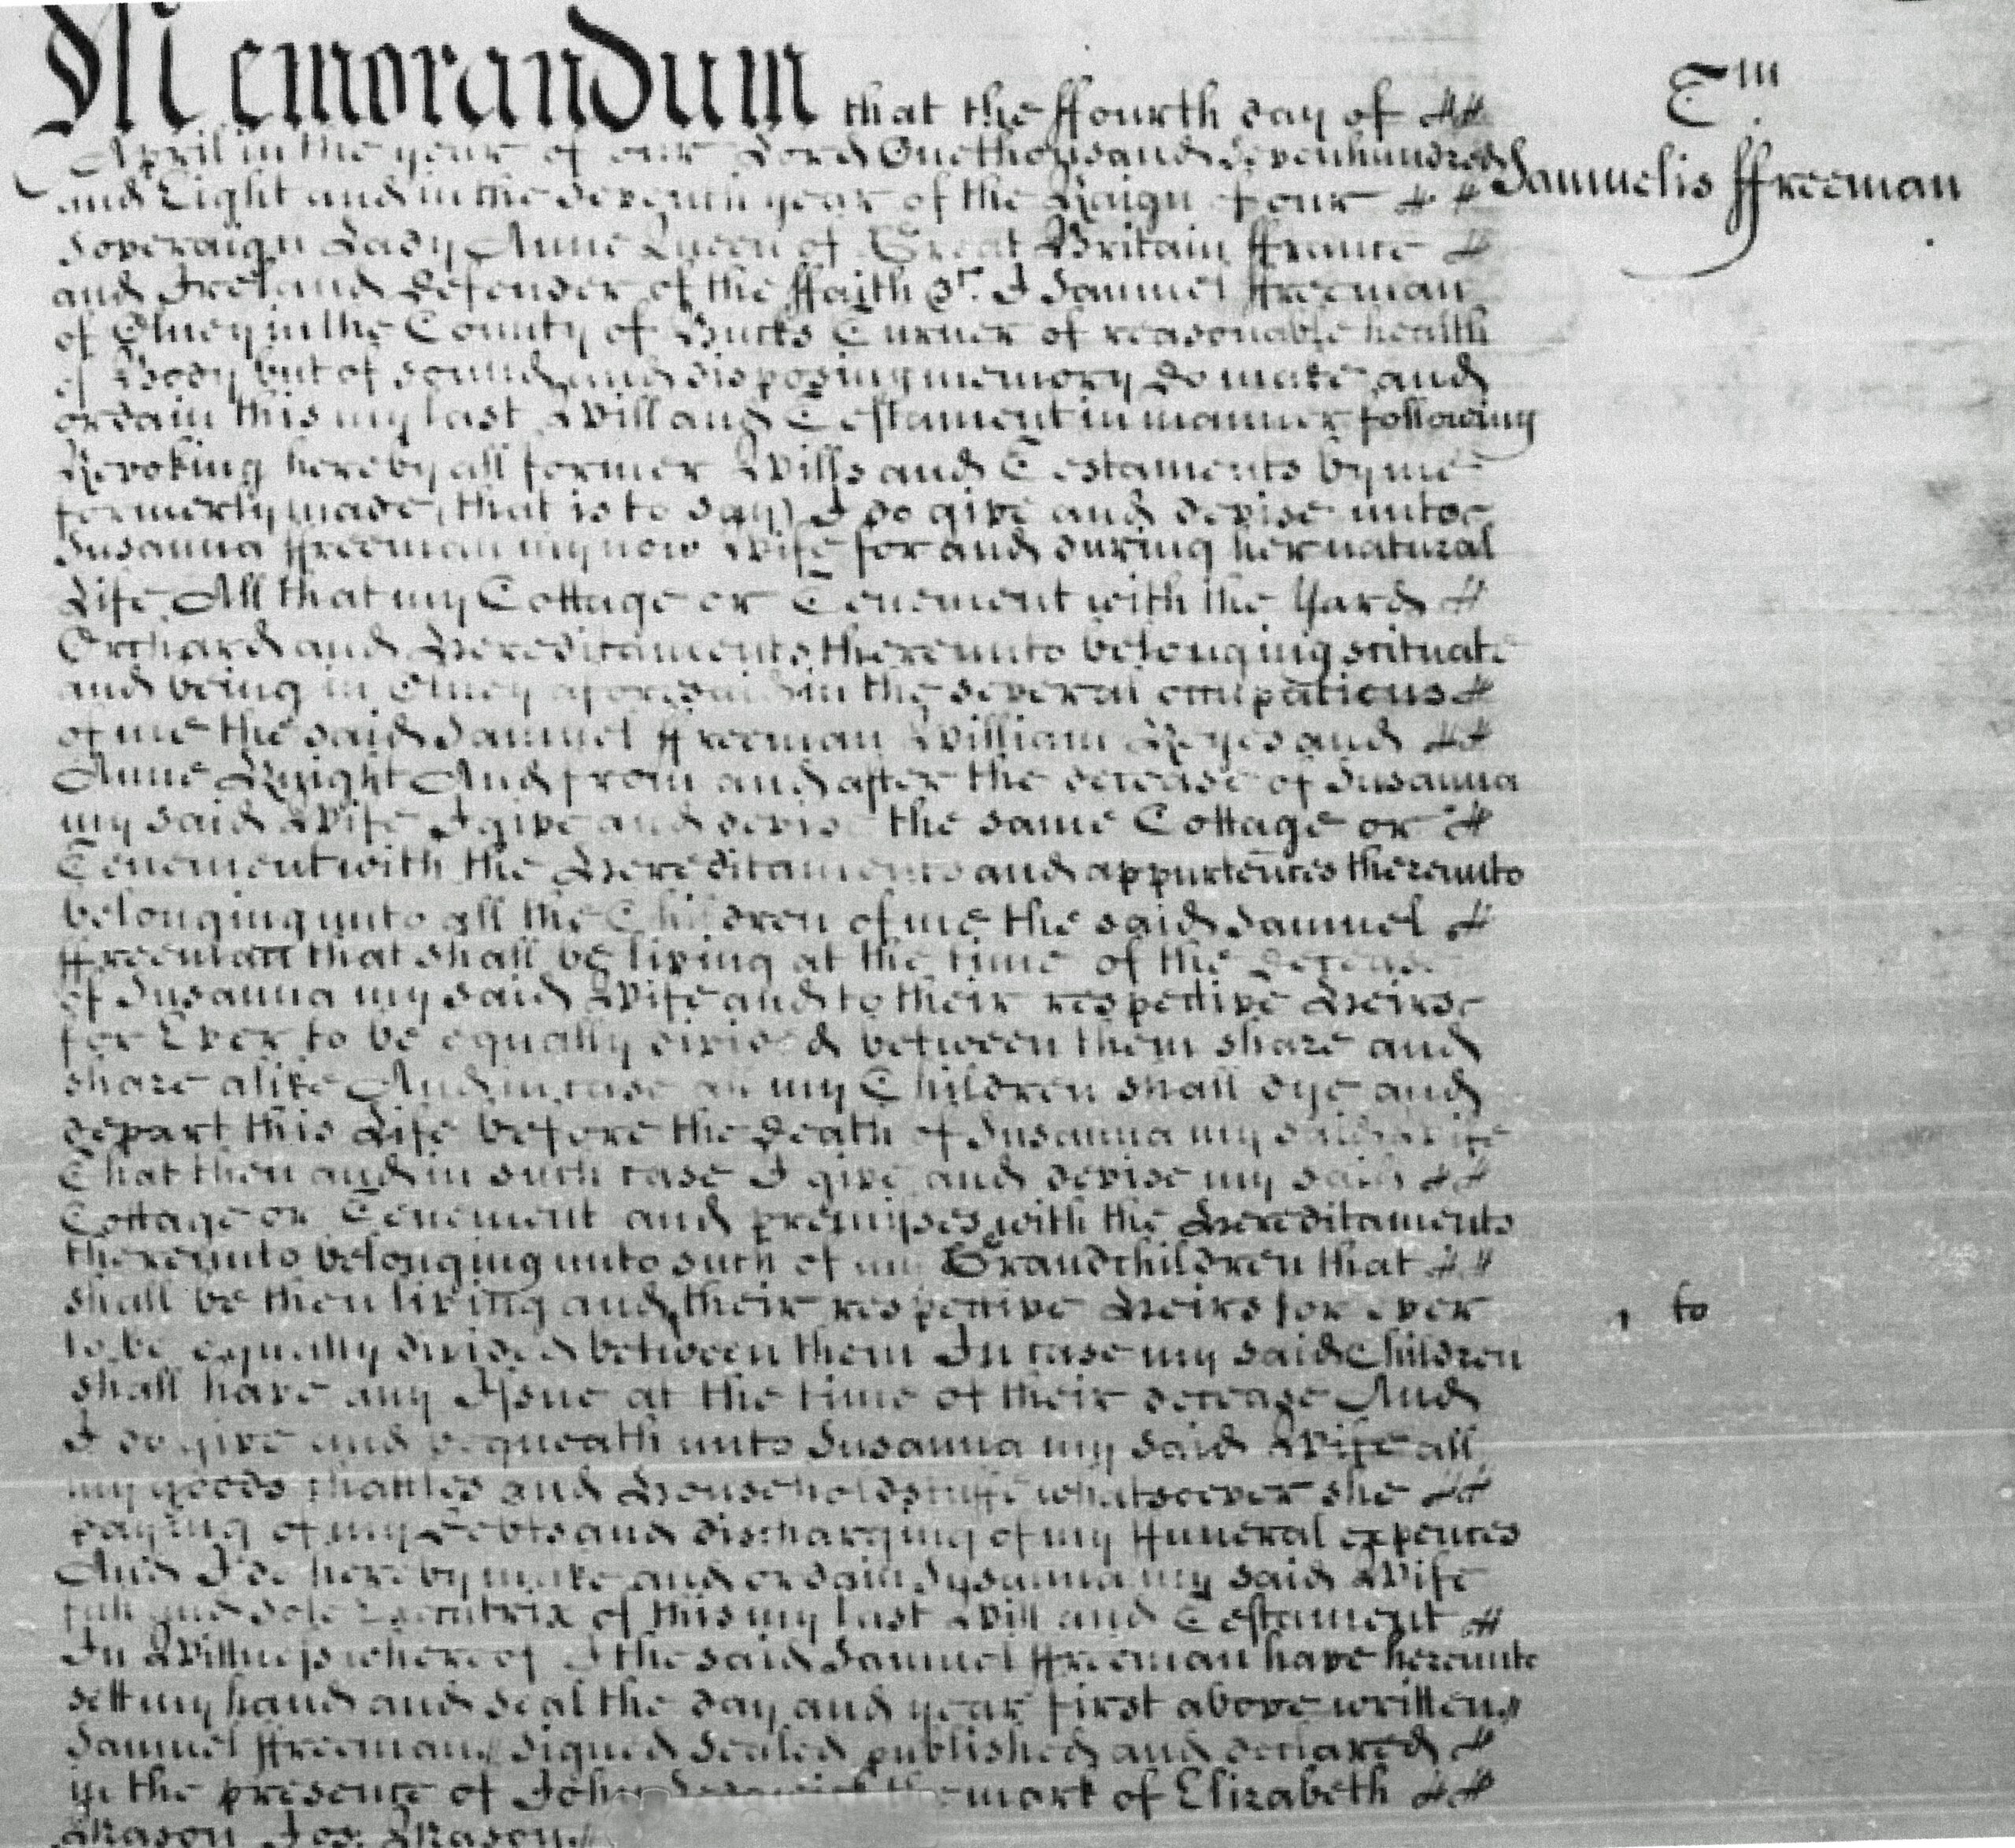 Memorandum that the ffourth day of
Tm
Samuelis ffreeman
April in the year of our Lord One thousand Seven hundred
and Eight and in the Seventh year of the Raign of our
Soveraign Lady Anne Queen of Great Britain ffrance
and Ireland Defender of the ffaith &c. I Samuel ffreeman
of Olney in the County of Bucks Turner of reasonable health
of Body but of sound and disposing memory Do make and
ordain this my last Will and Testament in manner following
Revoking hereby all former Wills and Testaments by me
formerly made, that is to say) I do give and devise unto
Susanna ffreeman my now Wife for and during her natural
Life All that my Cottage or Tenement with the Yard
Orchard and Hereditaments thereunto belonging scituate
and being in Olney aforesaid in the several occupations
of me the said Samuel ffreeman William Keyes and
Anne Knight And from and after the decease of Susanna
my said Wife I give and devise the same Cottage or
Tenement with the Hereditaments and appurtences thereunto
belonging unto all the Children of me the said Samuel
ffreeman that shall be living at the time of the Decease
of Susanna my said Wife and to their respective Heirs
for Ever to be equally divided between them share and
share alike And in case all my Children shall dye and
depart this Life before the Death of Susanna my said Wife
That then and in such case I give and devise my said
Cottage or Tenement and premisses with the Hereditaments
thereunto belonging unto such of my Grandchildren that
shall be then living and their respective Heirs for ever
, to
to be equally divided between them In case my said Children
shall have any Issue at the time of their decease And
I do give and bequeath unto Susanna my said Wife all
my goods chattles and Household stuffe whatsoever she
paying of my Debts and discharging of my ffuneral expences
And I do hereby make and ordain Susanna my said Wife
full and sole Executrix of this my last Will and Testament
In Wittness whereof I the said Samuel ffreeman have hereunto
sett my hand and seal the day and year first above written
Samuel ffreeman, Signed Sealed published and declared
in the presence of John the mark of Elizabeth
Mason Jos: Mason